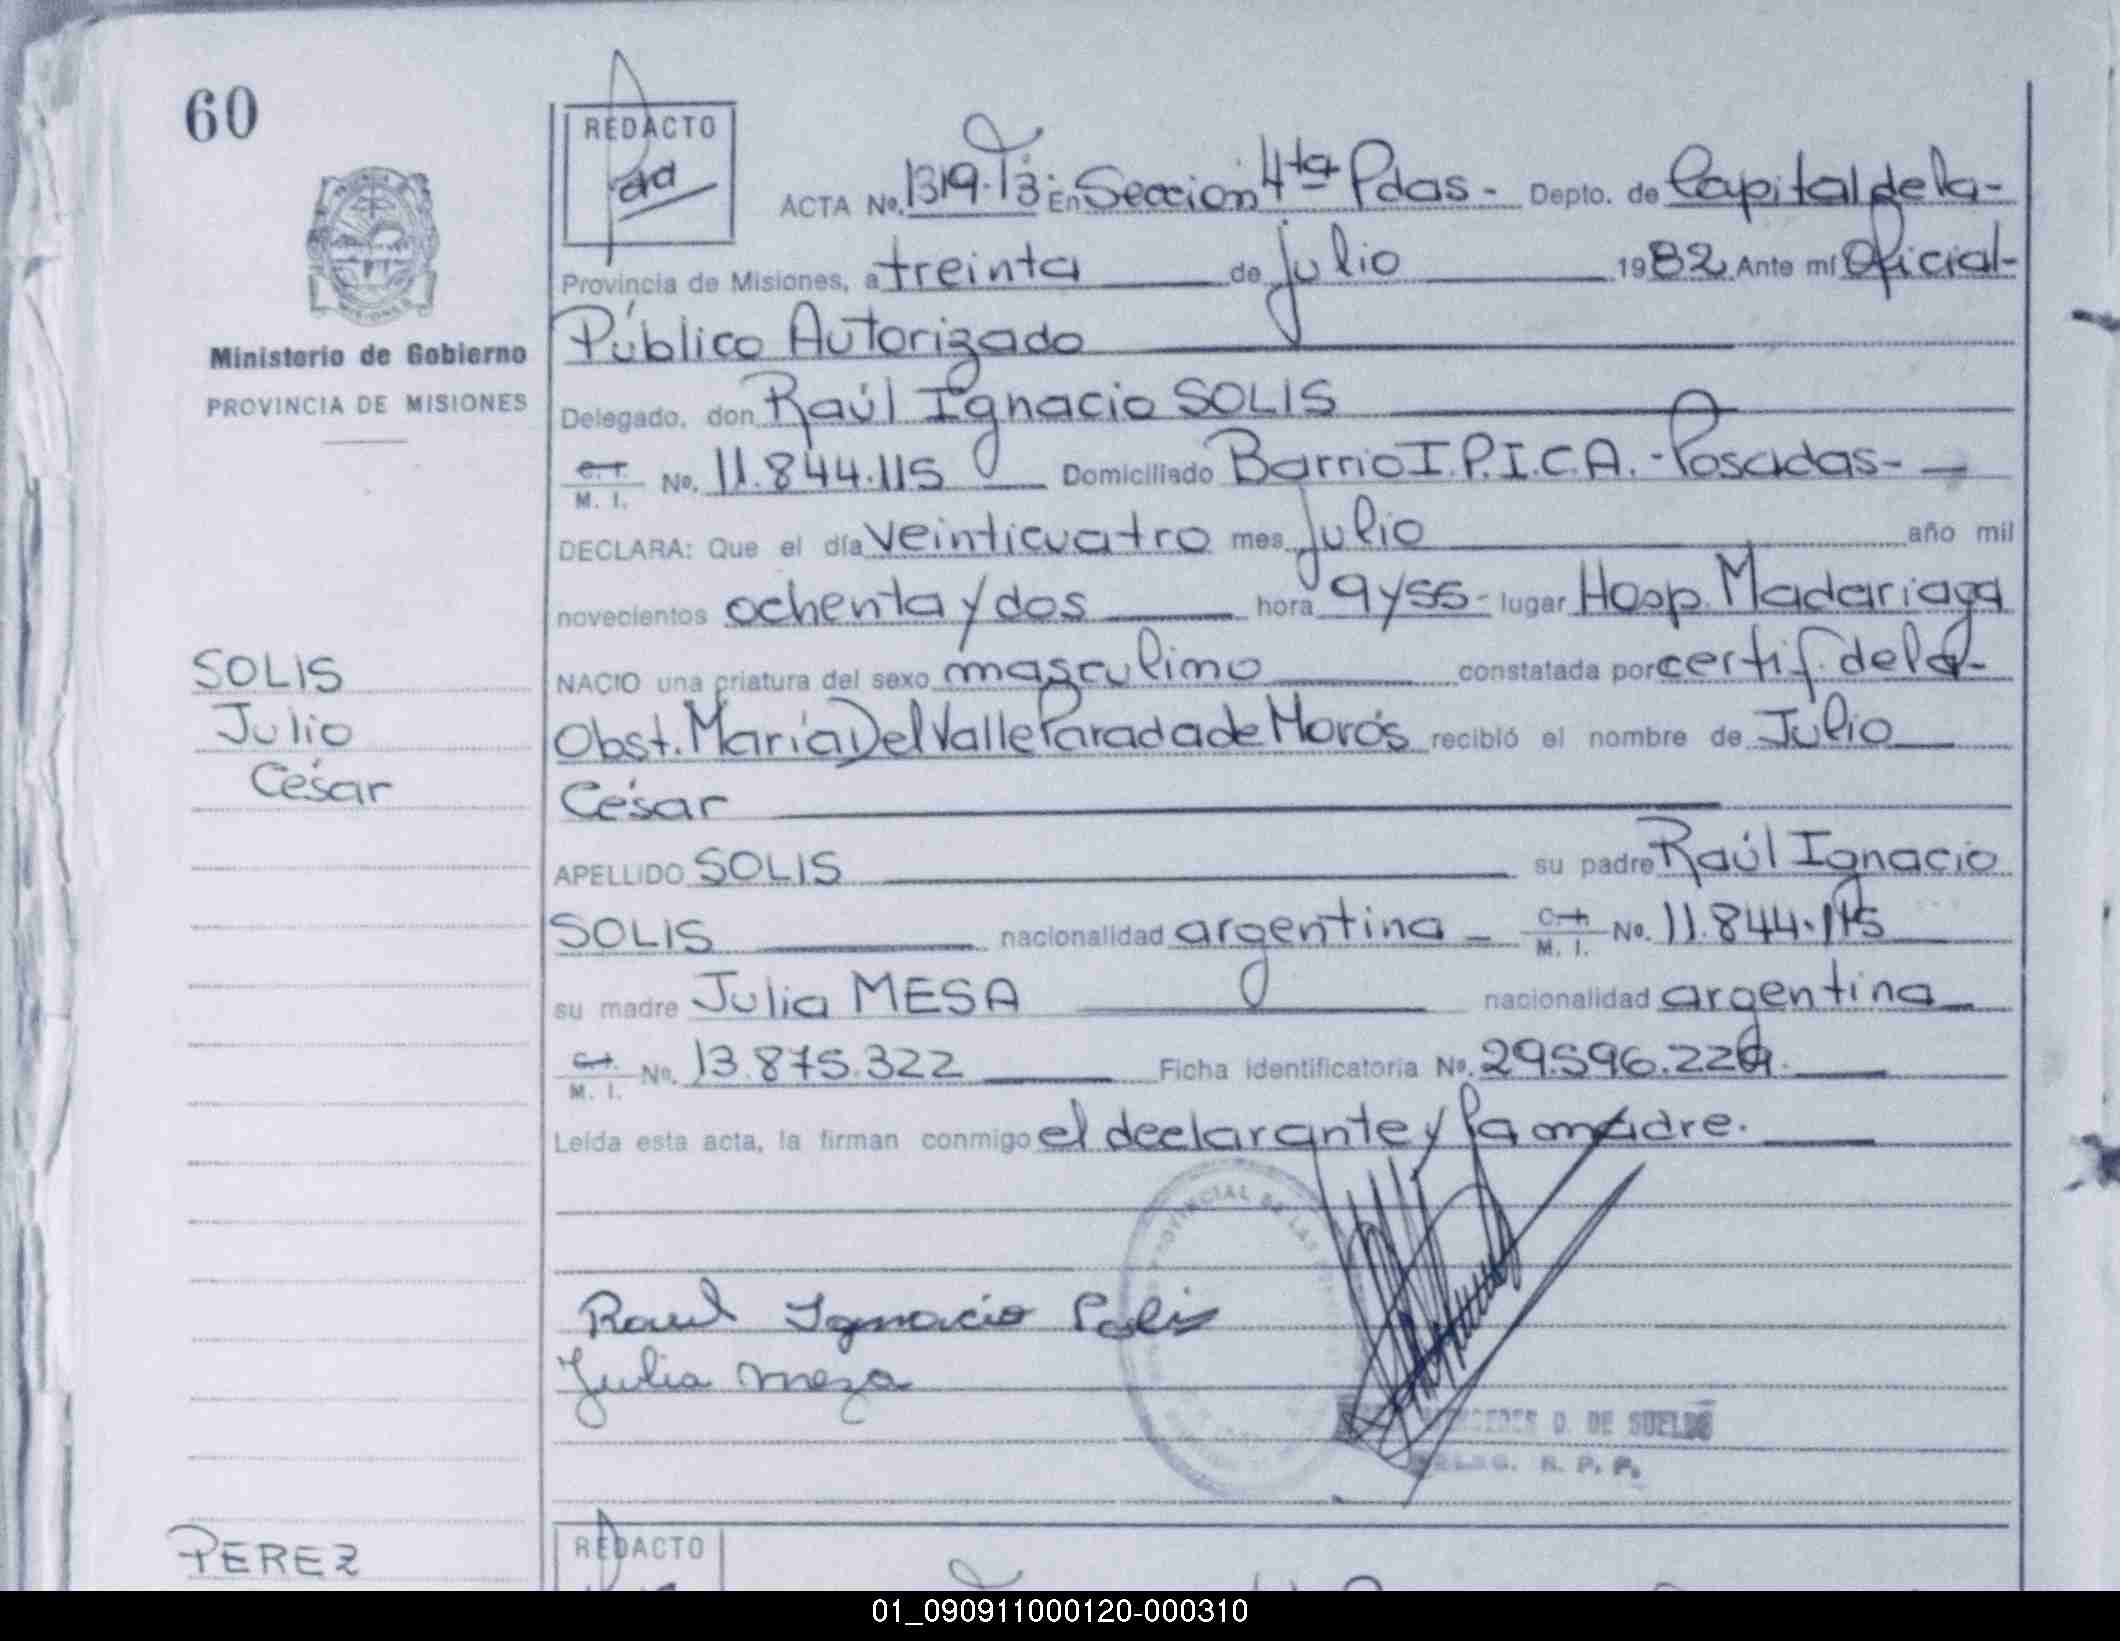 60
REDACTO
ad
ACTA No. 1319. T3: En Sección 4ta Pdas- Depto. de Capital de la-
Provincia de Misiones, a treinta de julio 1982 Ante mí Oficial-
Público Autorizado
Ministerio de Gobierno
PROVINCIA DE MISIONES
Delegado, don Raúl Ignacio SOLIS
C. I. M. I. No. 11.844.115 Domiciliado Barrio I.P.I.C.A. - Posadas -
DECLARA: Que el día veinticuatro mes julio año mil
novecientos ochenta y dos hora 9 y 55 - lugar Hosp. Madariaga
SOLIS
Julio
César
NACIO una criatura del sexo masculino constatada por certif. de la -
Obst. María Del Valle Parada de Morós recibió el nombre de Julio
César
APELLIDO SOLIS su padre Raúl Ignacio
SOLIS nacionalidad argentina - C. I. M. I. No. 11.844.115
su madre Julia MESA nacionalidad argentina
C. I. M. I. No. 13.875.322 Ficha identificatoria No. 29.596.229.
Leída esta acta, la firman conmigo el declarante y la madre.
PROVINCIAL DE LAS
Raul Ignacio Solis
Julia meza
D. DE SUELDO
R. P. P.
PEREZ
REDACTO
01_090911000120-000310